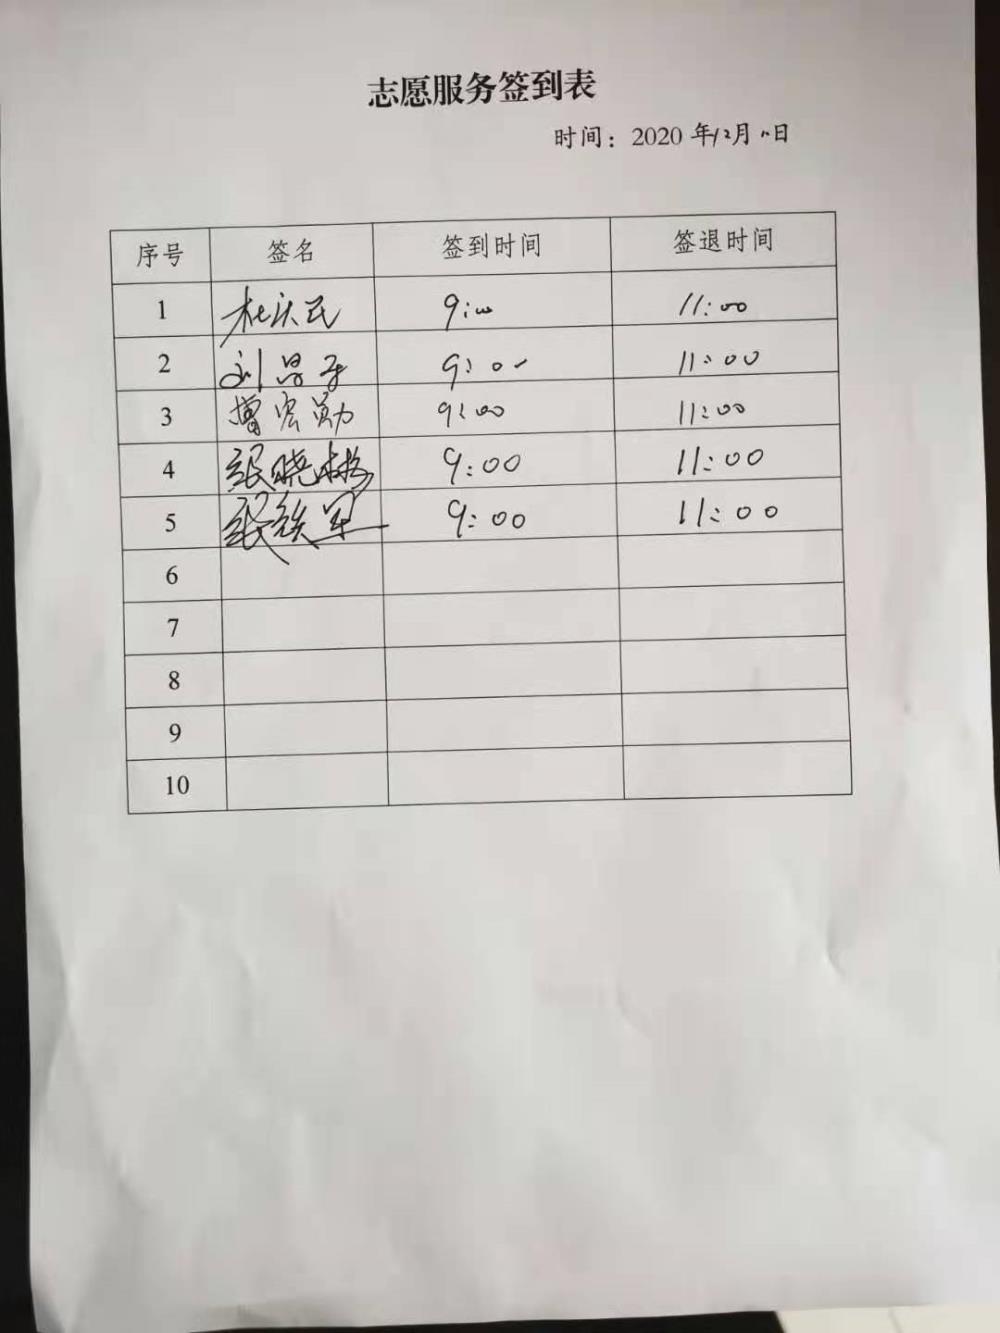 志愿服务签到表
时间：2020年12月11日
序号 签名 签到时间 签退时间
1 杜庆民 9:00 11:00
2 刘昌子 9:00 11:00
3 曾宏勋 9:00 11:00
4 张晓林 9:00 11:00
5 张铁军 9:00 11:00
6
7
8
9
10